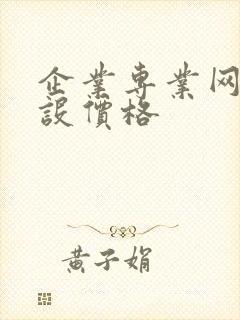 企業專業网
設價格
黄子娟